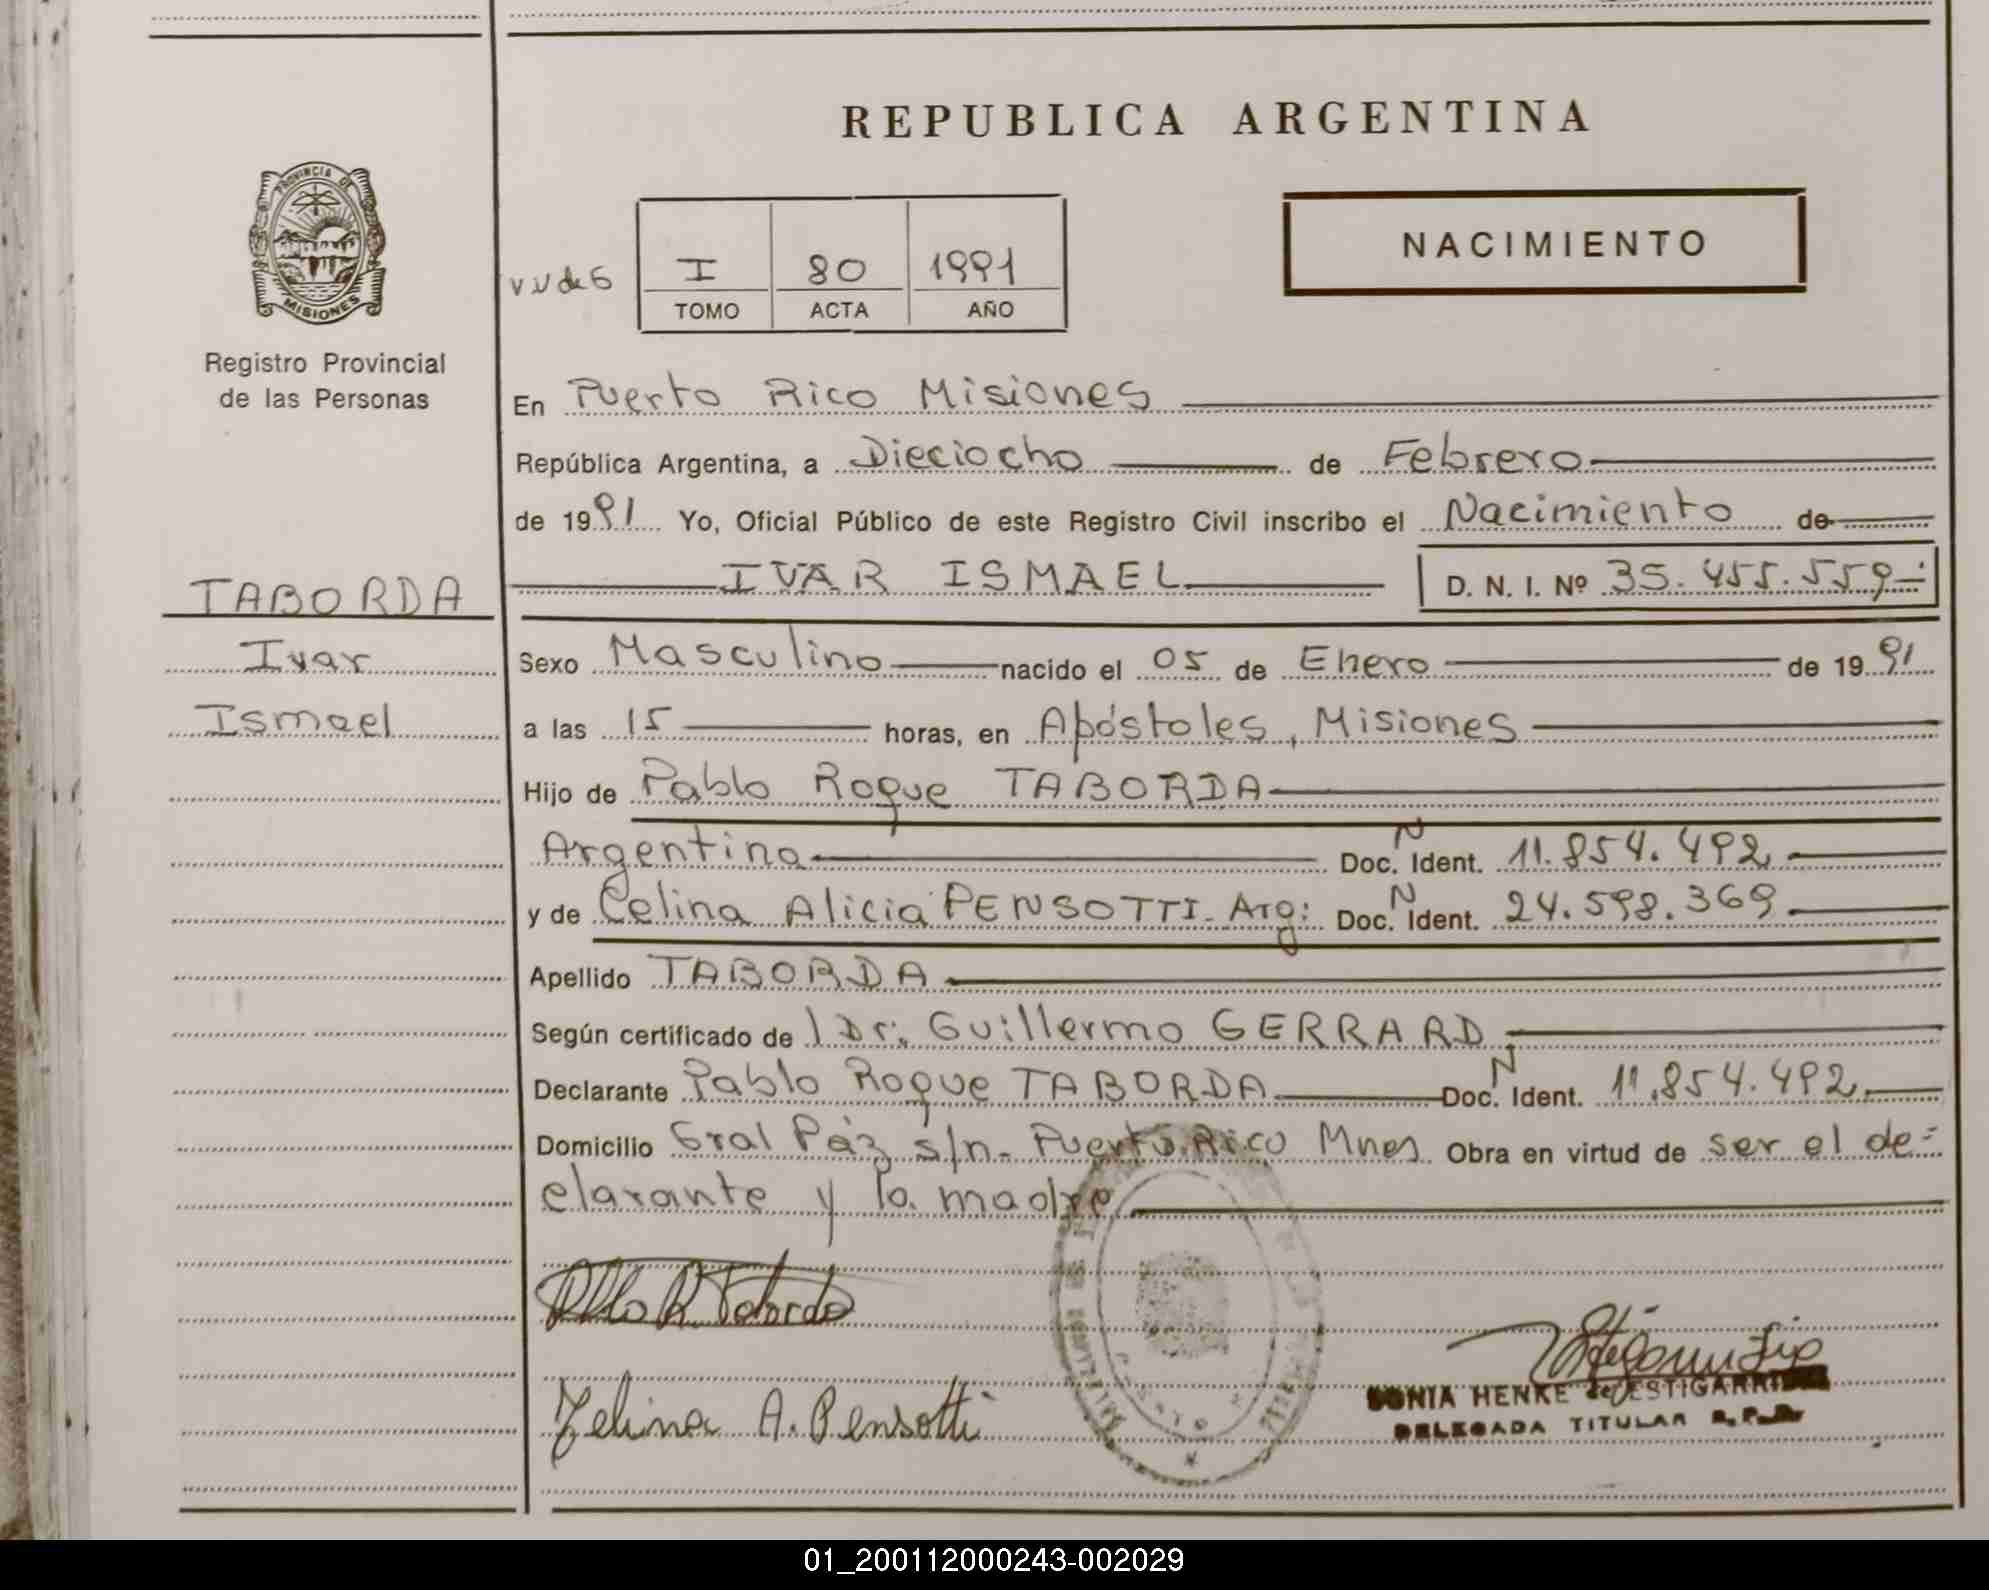 REPUBLICA ARGENTINA
PROVINCIA DE MISIONES
Registro Provincial
de las Personas
NACIMIENTO
I 80 1991
TOMO ACTA AÑO
En Puerto Rico Misiones
República Argentina, a Dieciocho de Febrero
de 1991 Yo, Oficial Público de este Registro Civil inscribo el Nacimiento de
IVAR ISMAEL D. N. I. Nº 35.455.559
TABORDA
Ivar
Ismael
Sexo Masculino nacido el 05 de Enero de 1991
a las 15 horas, en Apóstoles, Misiones
Hijo de Pablo Roque TABORDA
Argentina Doc. N Ident. 11.854.492
y de Celina Alicia PENSOTTI. Arg: Doc. N Ident. 24.598.369
Apellido TABORDA
Según certificado de l Dr. Guillermo GERRARD
Declarante Pablo Roque TABORDA Doc. N Ident. 11.854.492
Domicilio Gral Páz s/n. Puerto Rico Mnes Obra en virtud de ser el de=
clarante y la madre
Pablo R. Taborda
Celina A. Pensotti
SONIA HENKE de ESTIGARRIBIA
DELEGADA TITULAR R.P.P.
01_200112000243-002029